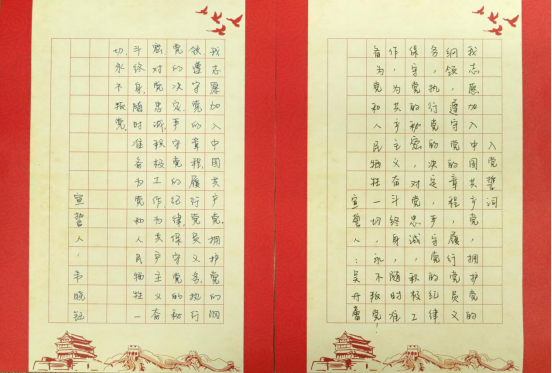 入党誓词
我志愿加入中国共产党,拥护党的
纲领,遵守党的章程,履行党员义
务,执行党的决定,严守党的纪律
保守党的秘密,对党忠诚,积极工
作,为共产主义奋斗终身,随时准
备为党和人民牺牲一切,永不叛党!
宣誓人:吴丹
我志愿加入中国共产党,拥护党的纲
领,遵守党的章程,履行党员义务,执行
党的决定,严守党的纪律,保守党的秘
密,对党忠诚,积极工作,为共产主义奋
斗终身,随时准备为党和人民牺牲一
切,永不叛党。
宣誓人:韦晓钰